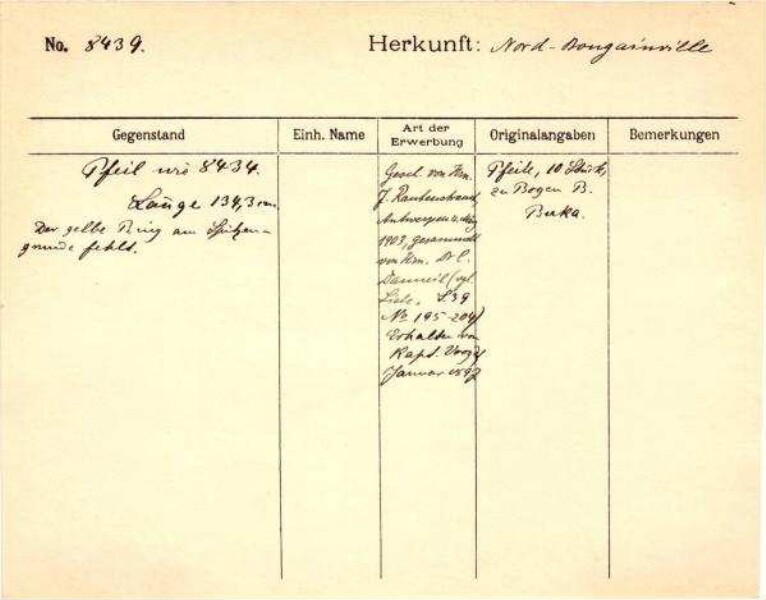 No. 8439.
Herkunft: Nord-Bougainville
Gegenstand
Einh. Name
Art der Erwerbung
Originalangaben
Bemerkungen
Pfeil wie 8434.
Länge 134,3 cm.
Der gelbe Ring am Spitzen-
grunde fehlt.
Gesch. von Hrn.
J. Rautenstrauch,
Antwerpen
1903, gesammelt
von Hrn. Dr C.
Danneil (vgl.
Liste. S 39
No 195-204)
Erhalten von
Kapt. Voogdt
Januar 1897
Pfeile, 10 Stück,
zu Bogen B.
Buka.